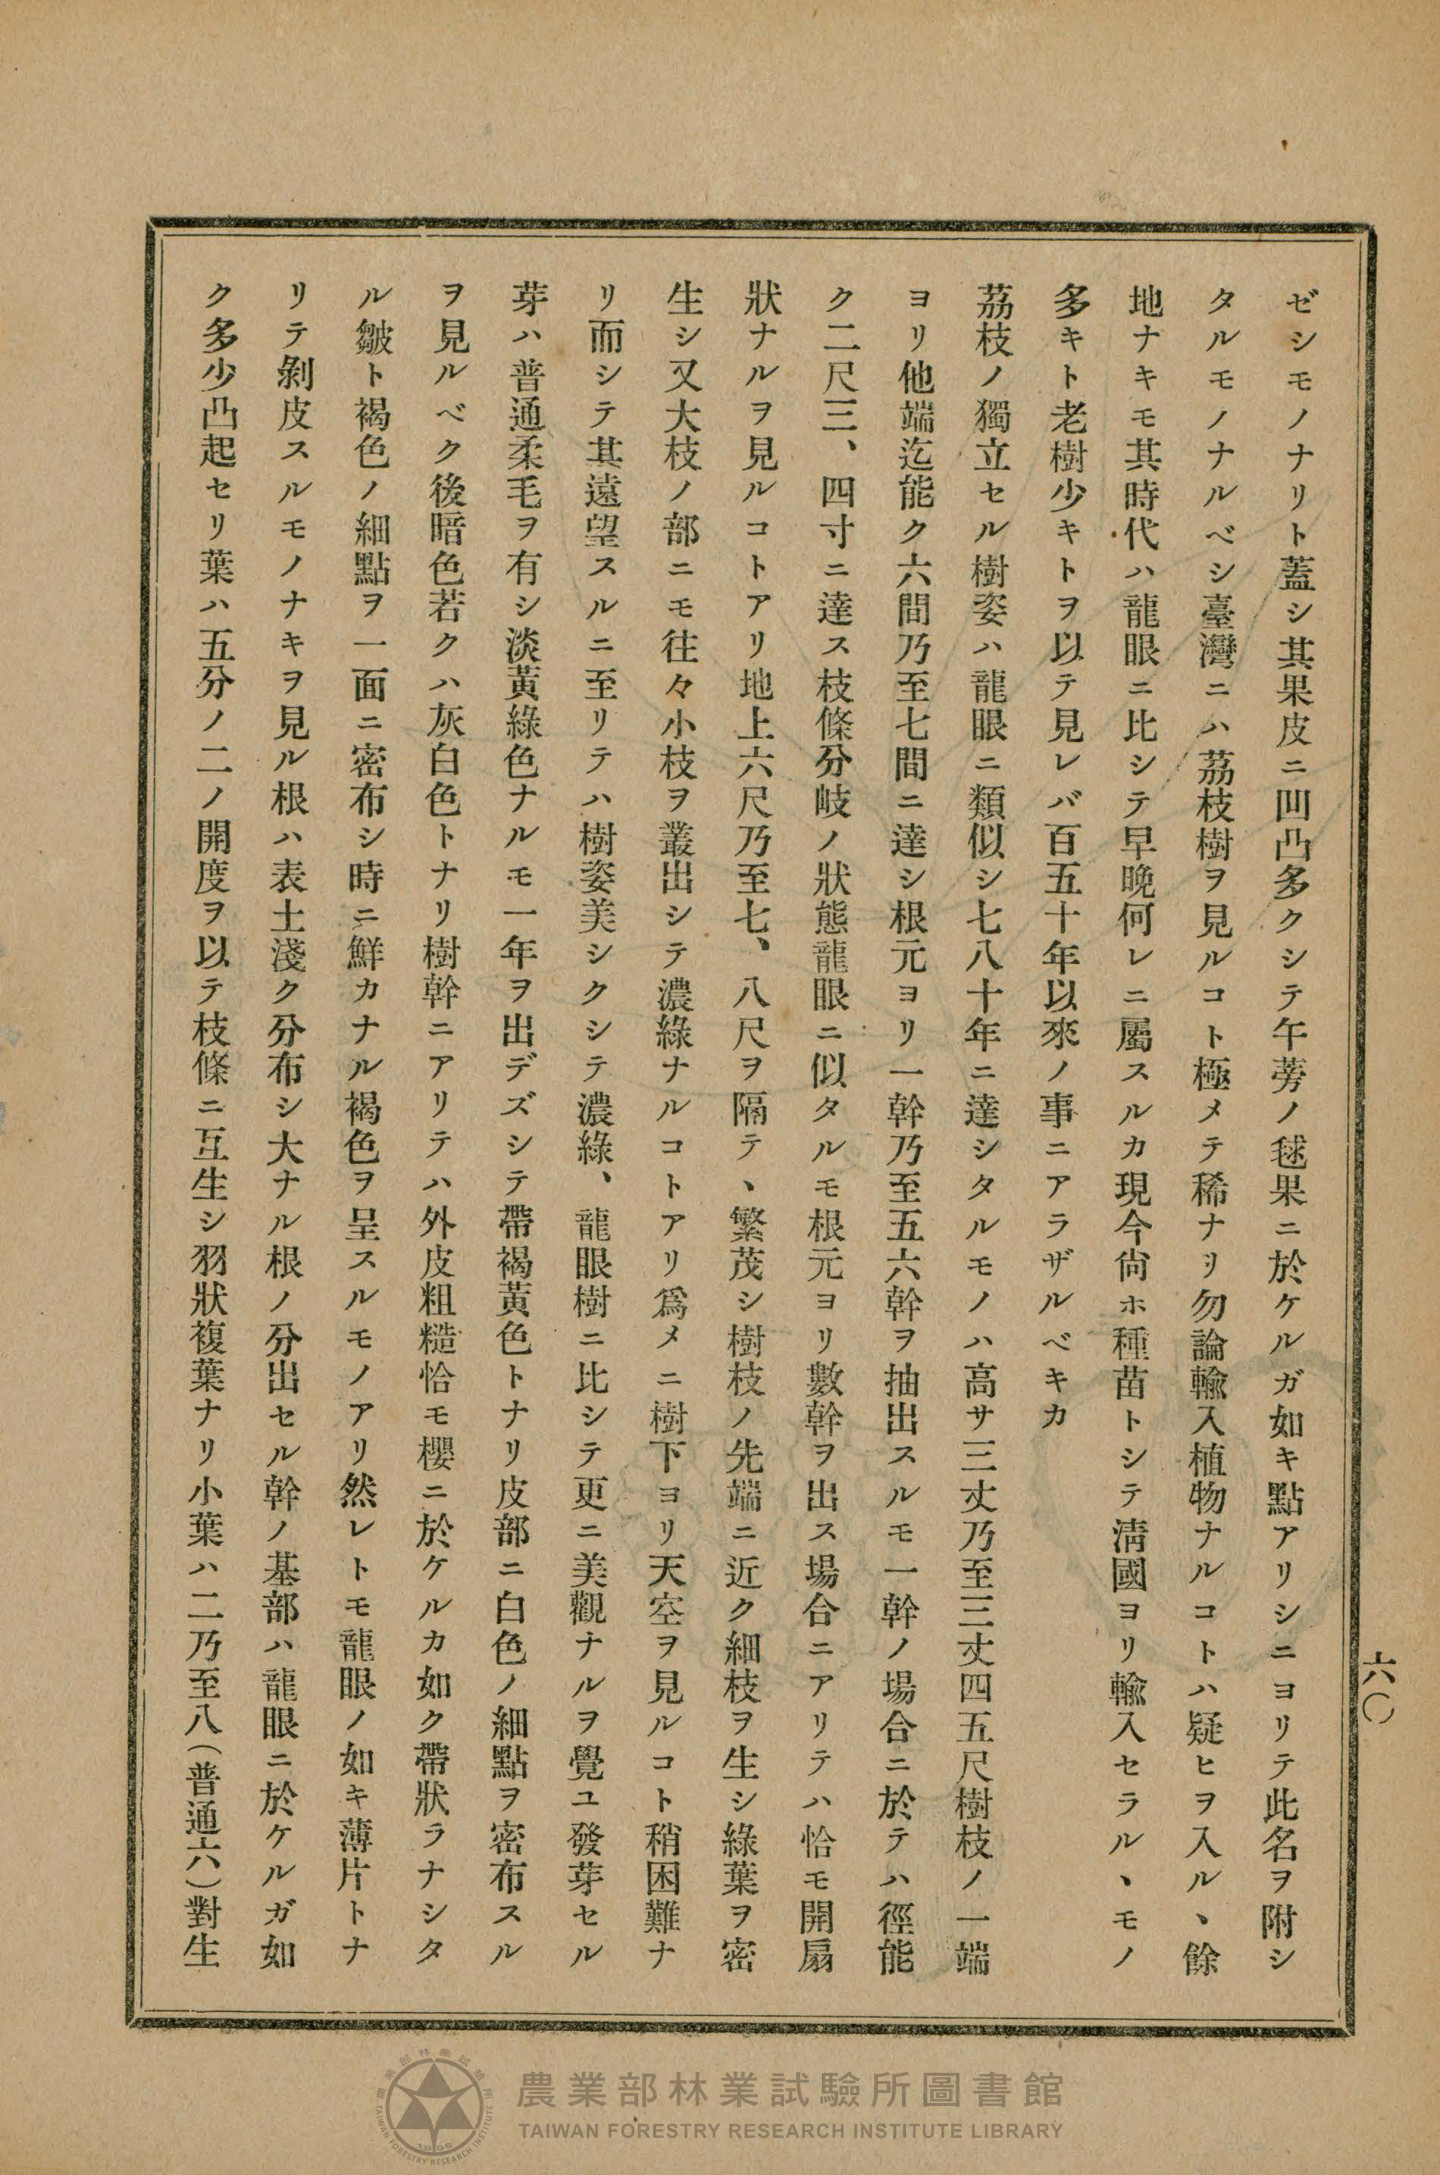 ゼシモノナリト蓋シ其果皮ニ凹凸多クシテ午蒡ノ毬果ニ於ケルガ如キ點アリシニヨリテ此名ヲ附シ
タルモノナルベシ臺灣ニハ荔枝樹ヲ見ルコト極メテ稀ナリ勿論輸入植物ナルコトハ疑ヒヲ入ル、餘
地ナキモ其時代ハ龍眼ニ比シテ早晩何レニ屬スルカ現今尙ホ種苗トシテ淸國ヨリ輸入セラル、モノ
多キト老樹少キトヲ以テ見レバ百五十年以來ノ事ニアラザルベキカ
荔枝ノ獨立セル樹姿ハ龍眼ニ類似シ七八十年ニ達シタルモノハ高サ三丈乃至三丈四五尺樹枝ノ一端
ヨリ他端迄能ク六間乃至七間ニ達シ根元ヨリ一幹乃至五六幹ヲ抽出スルモ一幹ノ場合ニ於テハ徑能
ク二尺三、四寸ニ達ス枝條分岐ノ狀態龍眼ニ似タルモ根元ヨリ數幹ヲ出ス場合ニアリテハ恰モ開扇
狀ナルヲ見ルコトアリ地上六尺乃至七、八尺ヲ隔テ、繁茂シ樹枝ノ先端ニ近ク細枝ヲ生シ綠葉ヲ密
生シ又大枝ノ部ニモ往々小枝ヲ叢出シテ濃綠ナルコトアリ爲メニ樹下ヨリ天空ヲ見ルコト稍困難ナ
リ而シテ其遠望スルニ至リテハ樹姿美シクシテ濃綠、龍眼樹ニ比シテ更ニ美觀ナルヲ覺ユ發芽セル
芽ハ普通柔毛ヲ有シ淡黃綠色ナルモ一年ヲ出デズシテ帶褐黃色トナリ皮部ニ白色ノ細點ヲ密布スル
ヲ見ルベク後暗色若クハ灰白色トナリ樹幹ニアリテハ外皮粗糙恰モ櫻ニ於ケルカ如ク帶狀ヲナシタ
ル皺ト褐色ノ細點ヲ一面ニ密布シ時ニ鮮カナル褐色ヲ呈スルモノアリ然レトモ龍眼ノ如キ薄片トナ
リテ剝皮スルモノナキヲ見ル根ハ表土淺ク分布シ大ナル根ノ分出セル幹ノ基部ハ龍眼ニ於ケルガ如
ク多少凸起セリ葉ハ五分ノ二ノ開度ヲ以テ枝條ニ互生シ羽狀複葉ナリ小葉ハ二乃至八（普通六）對生
六〇
農業部林業試驗所圖書館
TAIWAN FORESTRY RESEARCH INSTITUTE LIBRARY